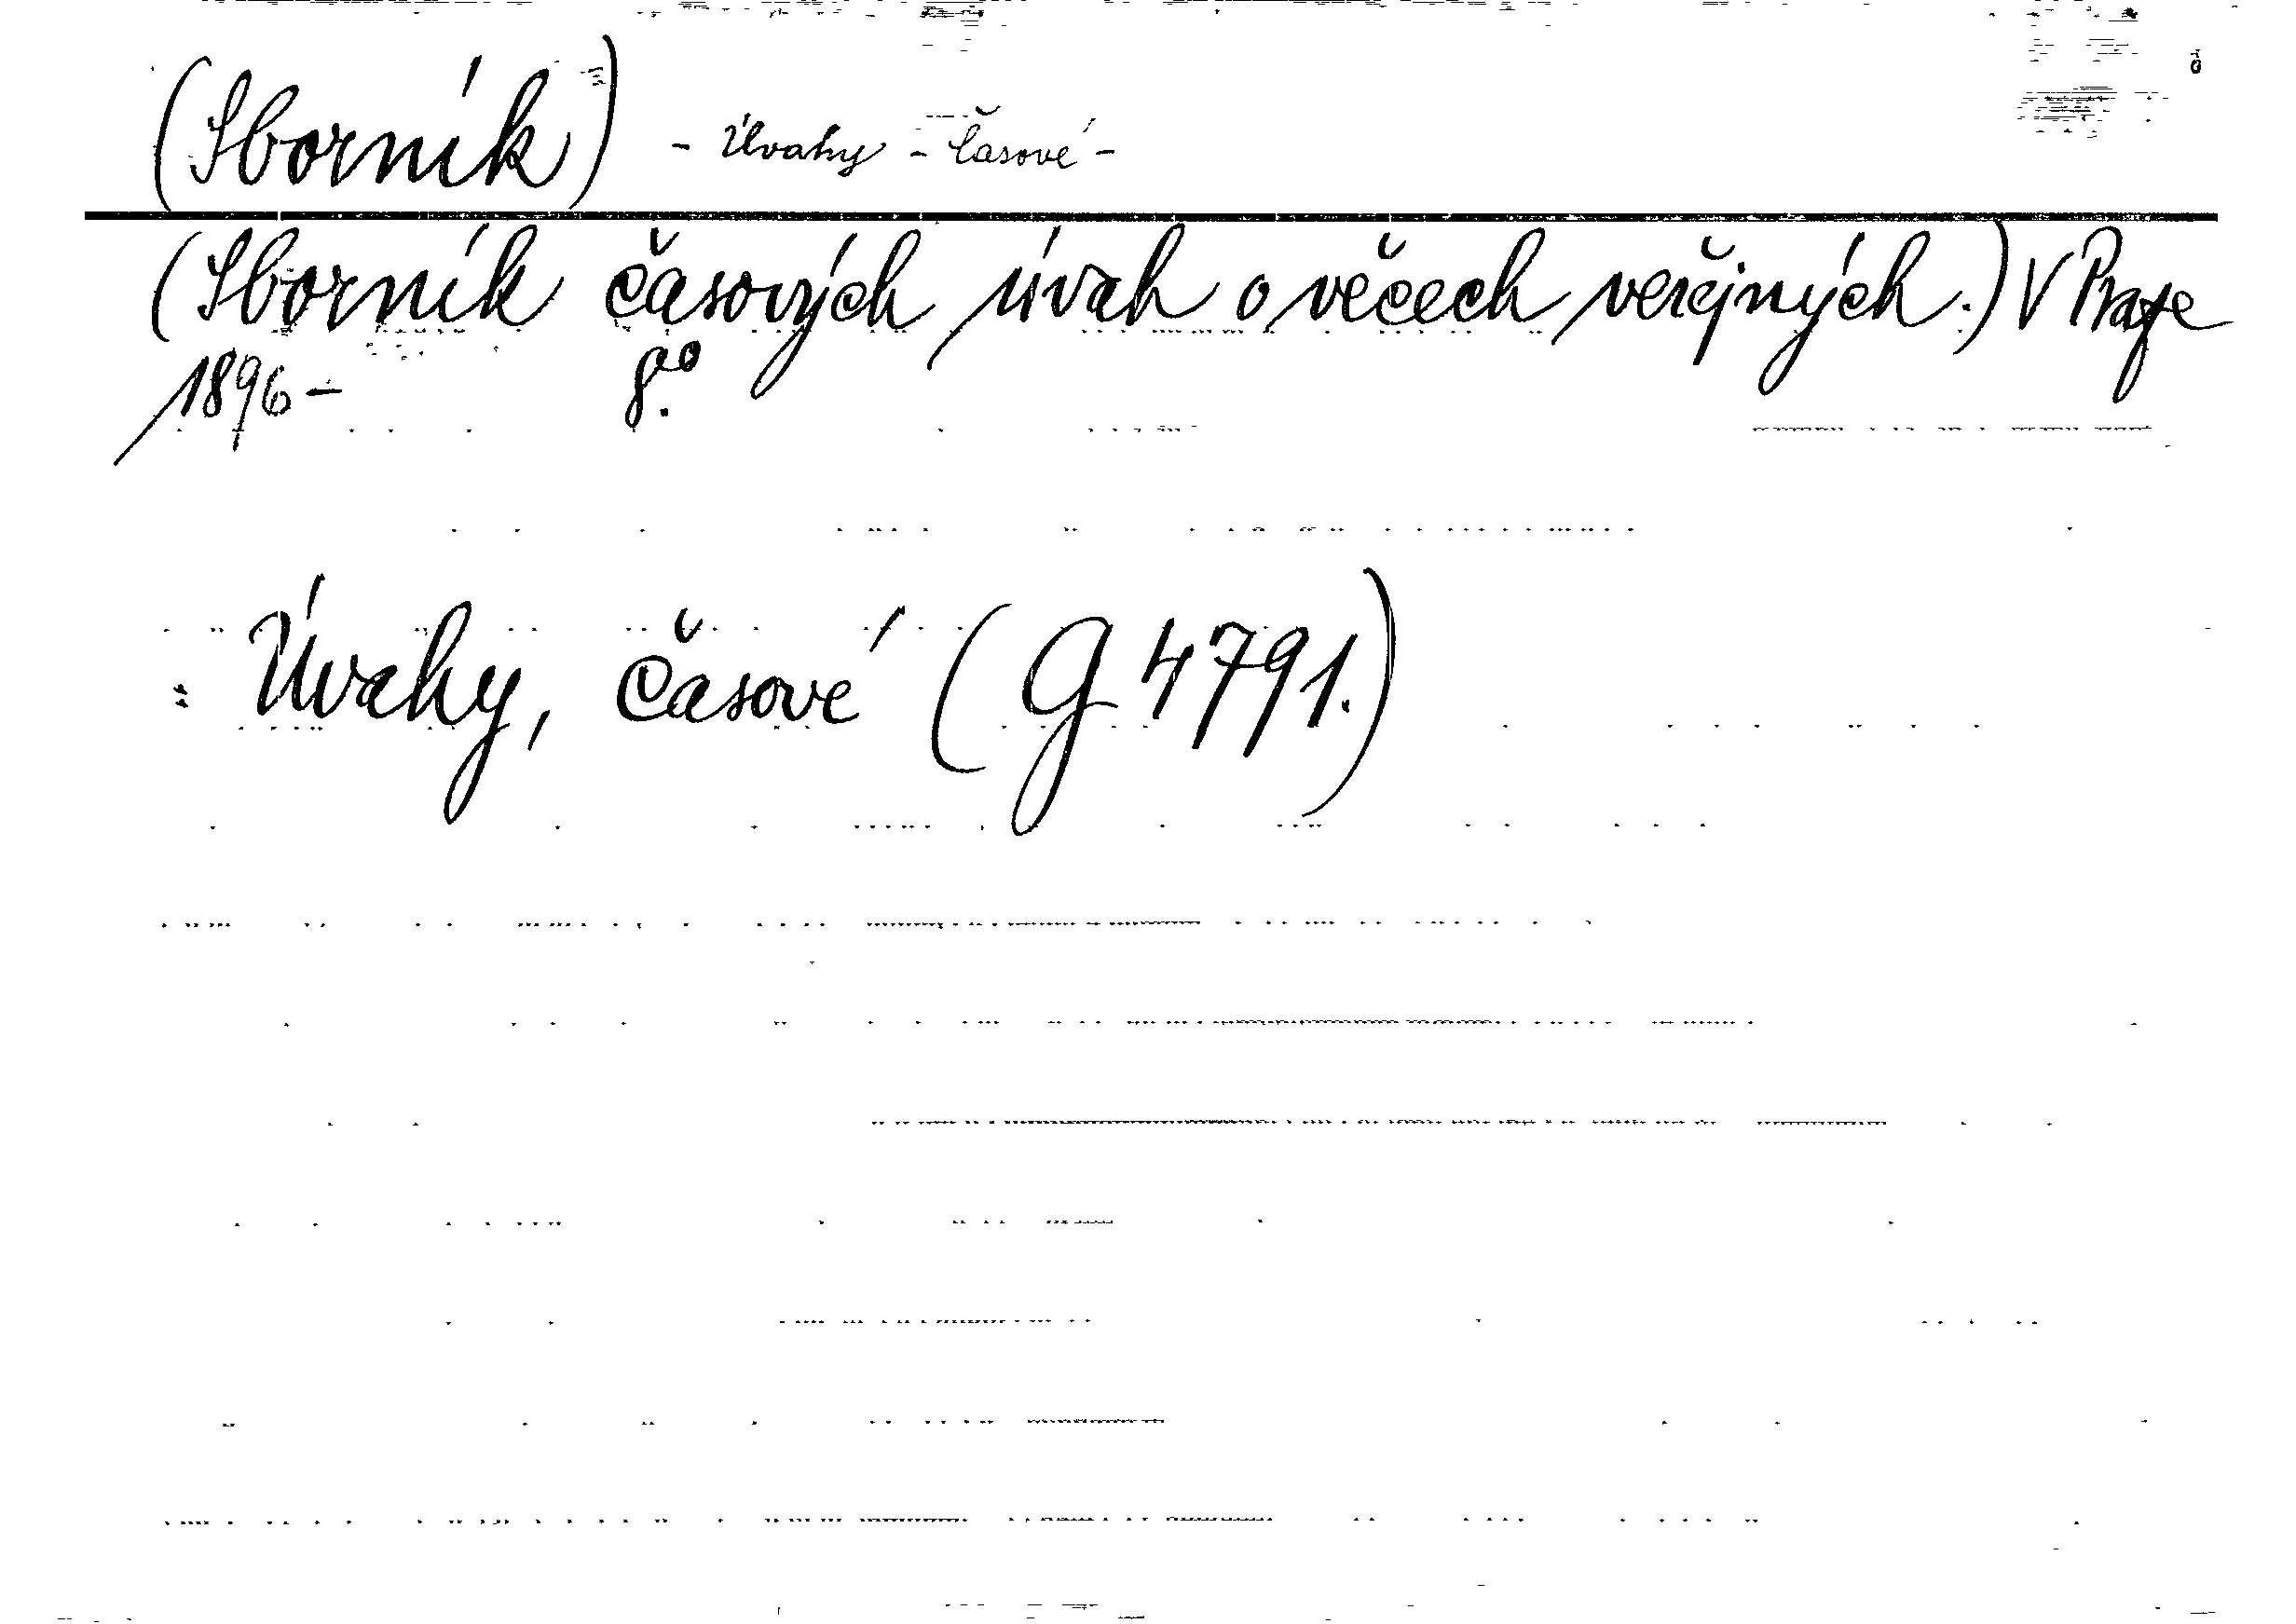 (Sborník) - Úvahy - časové -
(Sborník časových úvah o věcech veřejných.) V Praze
1896 - 8º.
: Úvahy, časové (G 4791.)